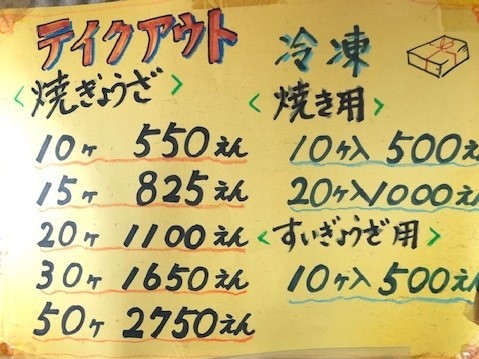 テイクアウト
<焼ぎょうざ>
10ヶ 550えん
15ヶ 825えん
20ヶ 1100えん
30ヶ 1650えん
50ヶ 2750えん
冷凍
<焼き用>
10ヶ入 500えん
20ヶ入 1000えん
<すいぎょうざ用>
10ヶ入 500えん